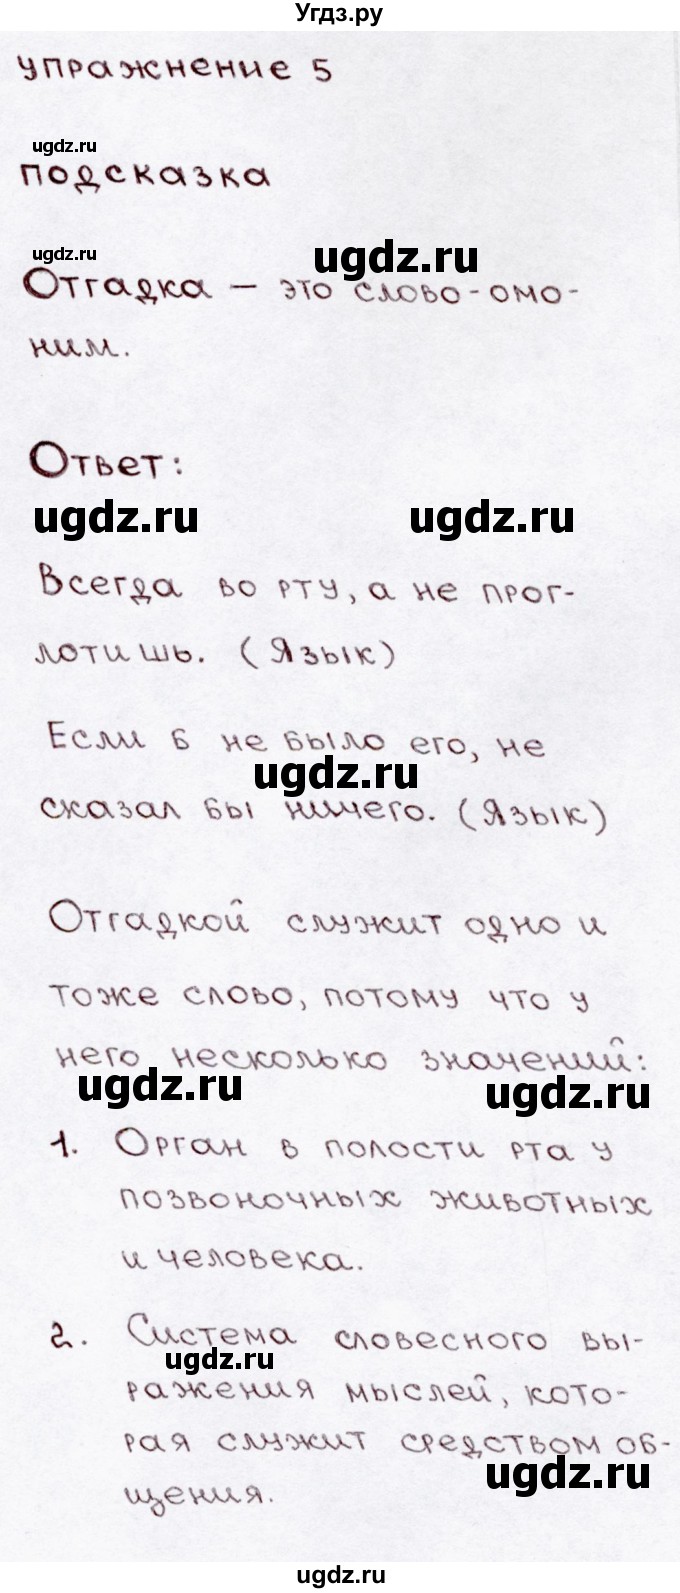 Угдз.ру
упражнение 5
ugdz.ru
подсказка
ugdz.ru
ugdz.ru
Отгадка – это слово-омо-
ним.
Ответ:
ugdz.ru ugdz.ru
Всегда во рту, а не прог-
лотишь. (Язык)
Если б не было его, не
ugdz.ru
сказал бы ничего. (Язык)
Отгадкой служит одно и
тоже слово, потому что у
него несколько значений:
ugdz.ru ugdz.ru
1. Орган в полости рта у
позвоночных животных
и человека.
2. Система словесного вы-
ugdz.ru
ражения мыслей, кото-
рая служит средством об-
ugdz.ru
щения.
ugdz.ru